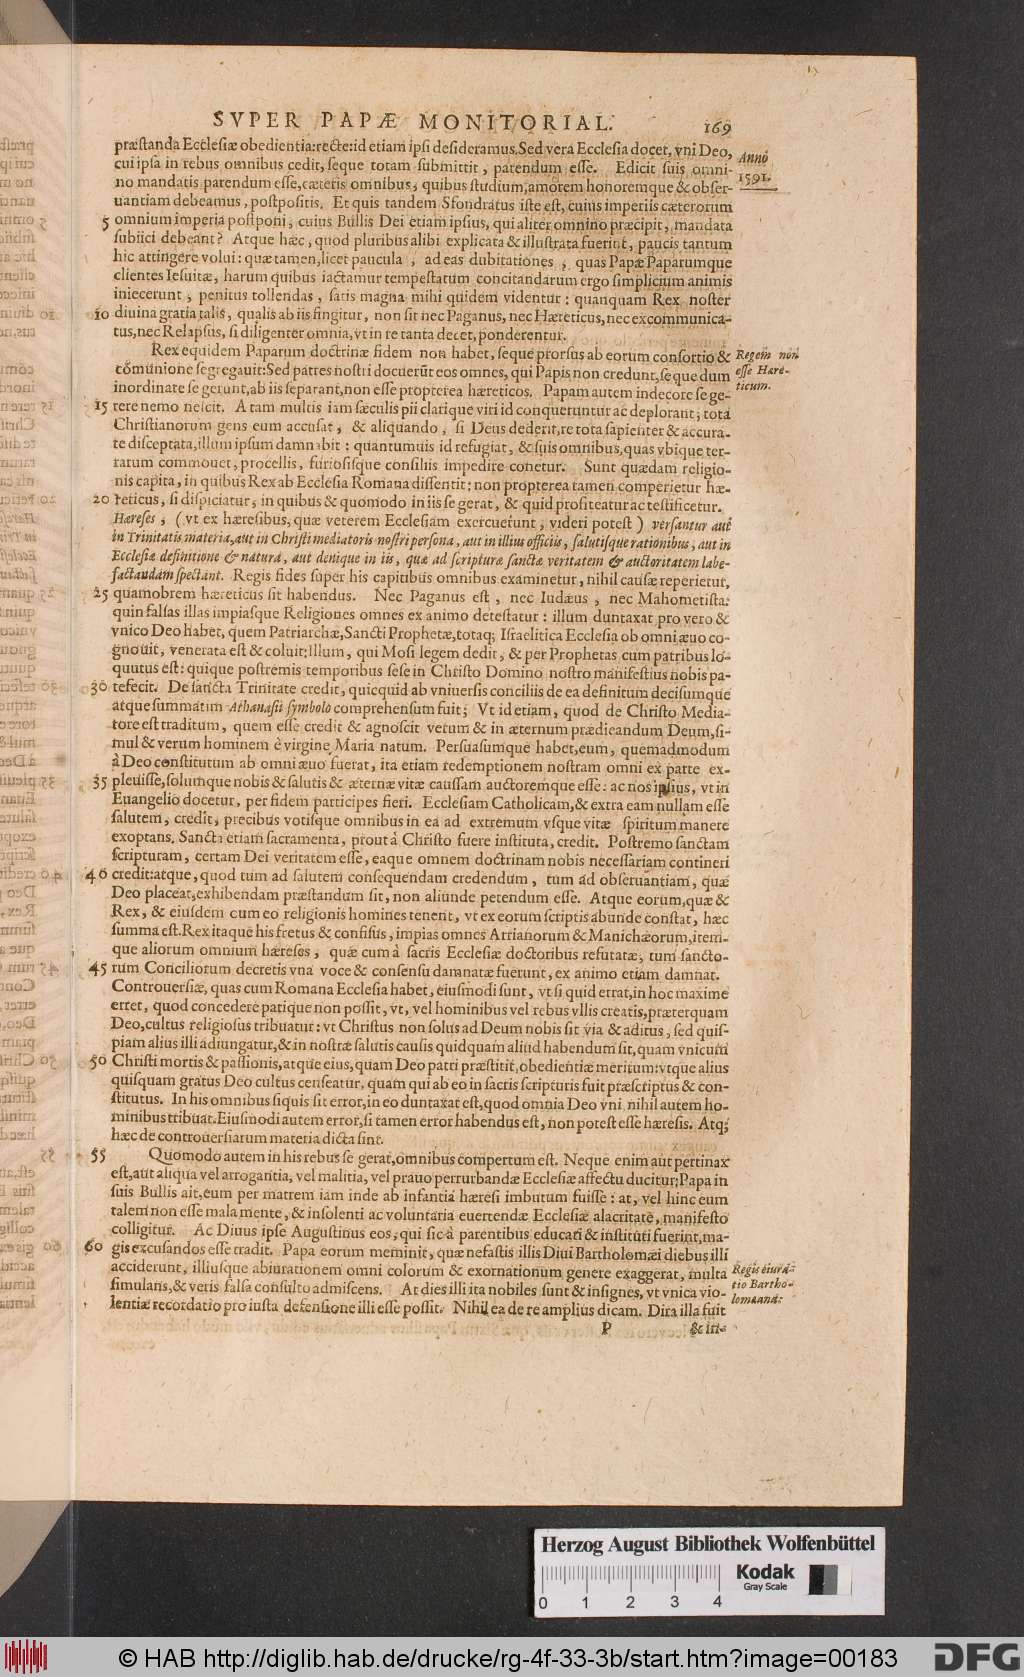 SVPER PAPÆ MONITORIAL. 169
præstanda Ecclesiæ obedientia: recte: id etiam ipsi desideramus. Sed vera Ecclesia docet, vni Deo,
cui ipsa in rebus omnibus cedit, seque totam submittit, parendum esse. Edicit suis omni-
no mandatis parendum esse, cæteris omnibus, quibus studium, amorem honoremque & obser-
uantiam debeamus, postpositis. Et quis tandem Sfondratus iste est, cuius imperiis cæterorum
5 omnium imperia postponi, cuius Bullis Dei etiam ipsius, qui aliter omnino præcipit, mandata
subiici debeant? Atque hæc, quod pluribus alibi explicata & illustrata fuerint, paucis tantum
hic attingere volui: quæ tamen, licet paucula, ad eas dubitationes, quas Papæ Paparumque
clientes Iesuitæ, harum quibus iactamur tempestatum concitandarum ergo simplicium animis
iniecerunt, penitus tollendas, satis magna mihi quidem videntur: quanquam Rex noster
10 diuina gratia talis, qualis ab iis fingitur, non sit nec Paganus, nec Hæreticus, nec excommunica-
tus, nec Relapsus, si diligenter omnia, vt in re tanta decet, ponderentur.
Anno
1591.
Rex equidem Paparum doctrinæ fidem non habet, seque prorsus ab eorum consortio &
cōmunione segregauit: Sed patres nostri docuerūt eos omnes, qui Papis non credunt, seque dum
inordinate se gerunt, ab iis separant, non esse propterea hæreticos. Papam autem indecore se ge-
15 rere nemo nescit. A tam multis iam sæculis pii clarique viri id conqueruntur ac deplorant; tota
Christianorum gens eum accusat, & aliquando, si Deus dederit, re tota sapienter & accura-
te disceptata, illum ipsum damnabit: quantumuis id refugiat, & suis omnibus, quas vbique ter-
rarum commouet, procellis, furiosisque consiliis impedire conetur. Sunt quædam religio-
nis capita, in quibus Rex ab Ecclesia Romana dissentit: non propterea tamen comperietur hæ-
20 reticus, si dispiciatur, in quibus & quomodo in iis se gerat, & quid profiteatur ac testificetur.
Hæreses, (vt ex hæresibus, quæ veterem Ecclesiam exercuerunt, videri potest) versantur aut
in Trinitatis materia, aut in Christi mediatoris nostri persona, aut in illius officiis, salutisque rationibus, aut in
Ecclesiæ definitione & natura, aut denique in iis, quæ ad scripturæ sanctæ veritatem & auctoritatem labe-
factandam spectant. Regis fides super his capitubus omnibus examinetur, nihil causæ reperietur,
25 quamobrem hæreticus sit habendus. Nec Paganus est, nec Iudæus, nec Mahometista:
quin falsas illas impiasque Religiones omnes ex animo detestatur: illum duntaxat pro vero &
vnico Deo habet, quem Patriarchæ, Sancti Prophetæ, totaq; Israelitica Ecclesia ob omni æuo co-
gnouit, venerata est & coluit: Illum, qui Mosi legem dedit, & per Prophetas cum patribus lo-
quutus est: quique postremis temporibus sese in Christo Domino nostro manifestius nobis pa-
30 tefecit. De sancta Trinitate credit, quicquid ab vniuersis conciliis de ea definitum decisumque
atque summatim Athanasii symbolo comprehensum fuit; Vt id etiam, quod de Christo Media-
tore est traditum, quem esse credit & agnoscit verum & in æternum prædicandum Deum, si-
mul & verum hominem è virgine Maria natum. Persuasumque habet, eum, quemadmodum
à Deo constitutum ab omni æuo fuerat, ita etiam redemptionem nostram omni ex parte ex-
35 pleuisse, solumque nobis & salutis & æternæ vitæ caussam auctoremque esse: ac nos ipsius, vt in
Euangelio docetur, per fidem participes fieri. Ecclesiam Catholicam, & extra eam nullam esse
salutem, credit, precibus votisque omnibus in ea ad extremum vsque vitæ spiritum manere
exoptans. Sancta etiam sacramenta, prout à Christo fuere instituta, credit. Postremo sanctam
scripturam, certam Dei veritatem esse, eaque omnem doctrinam nobis necessariam contineri
40 credit: atque, quod tum ad salutem consequendam credendum, tum ad obseruantiam, quæ
Deo placeat, exhibendam præstandum sit, non aliunde petendum esse. Atque eorum, quæ &
Rex, & eiusdem cum eo religionis homines tenent, vt ex eorum scriptis abunde constat, hæc
summa est. Rex itaque his fretus & confisus, impias omnes Arrianorum & Manichæorum, item-
que aliorum omnium hæreses, quæ cum à sacris Ecclesiæ doctoribus refutatæ, tum sancto-
45 rum Conciliorum decretis vna voce & consensu damnatæ fuerunt, ex animo etiam damnat.
Controuersiæ, quas cum Romana Ecclesia habet, eiusmodi sunt, vt si quid errat, in hoc maxime
erret, quod concedere patique non possit, vt, vel hominibus vel rebus vllis creatis, præterquam
Deo, cultus religiosus tribuatur: vt Christus non solus ad Deum nobis sit via & aditus, sed quis-
piam alius illi adiungatur, & in nostræ salutis causis quidquam aliud habendum sit, quam vnicum
50 Christi mortis & passionis, atque eius, quam Deo patri præstitit, obedientiæ meritum: vtque alius
quisquam gratus Deo cultus censeatur, quam qui ab eo in sacris scripturis fuit præscriptus & con-
stitutus. In his omnibus si quis sit error, in eo duntaxat est, quod omnia Deo vni nihil autem ho-
minibus tribuat. Eiusmodi autem error, si tamen error habendus est, non potest esse hæresis. Atq;
hæc de controuersiarum materia dicta sint.
Regem non
esse Hære-
ticum.
55 Quomodo autem in his rebus se gerat, omnibus compertum est. Neque enim aut pertinax
est, aut aliqua vel arrogantia, vel malitia, vel prauo perturbandæ Ecclesiæ affectu ducitur; Papa in
suis Bullis ait, eum per matrem iam inde ab infantia hæresi imbutum fuisse: at, vel hinc eum
talem non esse mala mente, & insolenti ac voluntaria euertendæ Ecclesiæ alacritate, manifesto
colligitur. Ac Diuus ipse Augustinus eos, qui sic à parentibus educati & instituti fuerint, ma-
60 gis excusandos esse tradit. Papa eorum meminit, quæ nefastis illis Diui Bartholomæi diebus illi
acciderunt, illiusque abiurationem omni colorum & exornationum genere exaggerat, multa
simulans, & veris falsa consulto admiscens. At dies illi ita nobiles sunt & insignes, vt vnica vio-
lentiæ recordatio pro iusta defensione illi esse possit. Nihil ea de re amplius dicam. Dira illa fuit
Regis eiura-
tio Bartho-
lomæana:
P &
Herzog August Bibliothek Wolfenbüttel
Kodak
Gray Scale
0 1 2 3 4
© HAB http://diglib.hab.de/drucke/rg-4f-33-3b/start.htm?image=00183
DFG